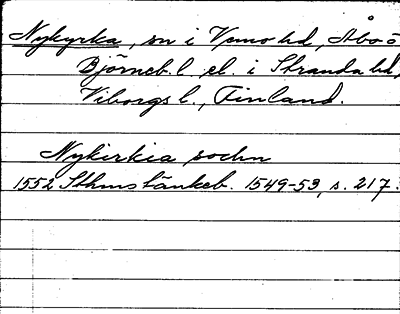 Nykyrka, sn i Vemo hd, Åbo o
Björneb. l. el. i Stranda hd,
Viborgs l., Finland.
Nykirkia sochn
1552 Sthms tänkeb. 1549-53, s. 217.